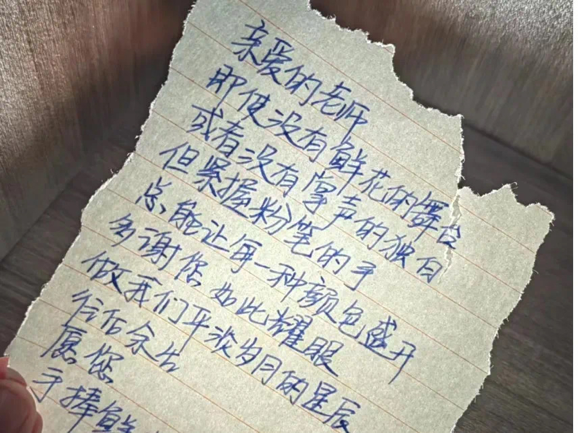 亲爱的老师
即使没有鲜花的舞台
或者没有掌声的独白
但紧握粉笔的手
总能让每一种颜色盛开
多谢您如此耀眼
做我们平淡岁月的星辰
往后余生
愿您
手捧鲜